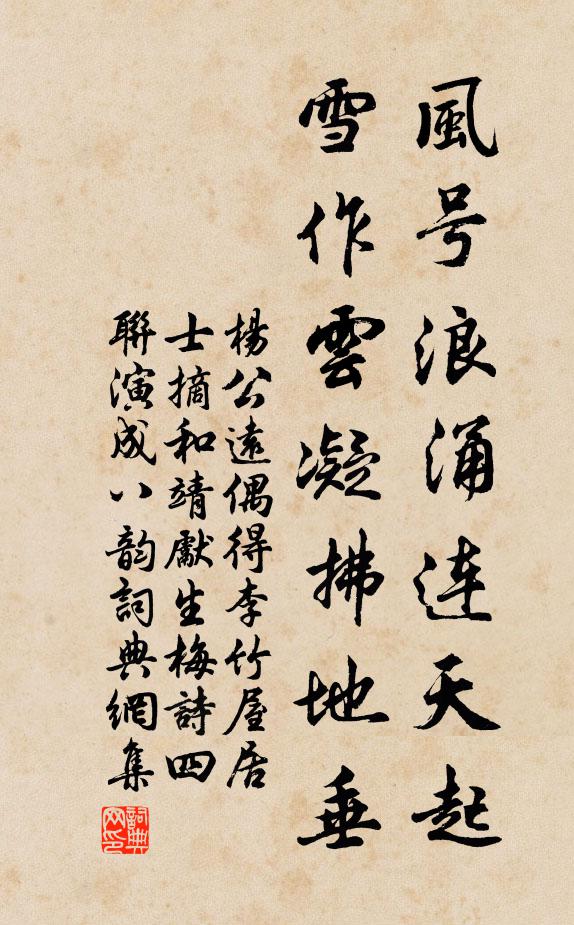 風号浪涌连天起
雪作雲凝拂地垂
楊公遠偶得李竹屋居
士摘和靖獻生梅詩四
聯演成八韵詞典網集
詞典网印